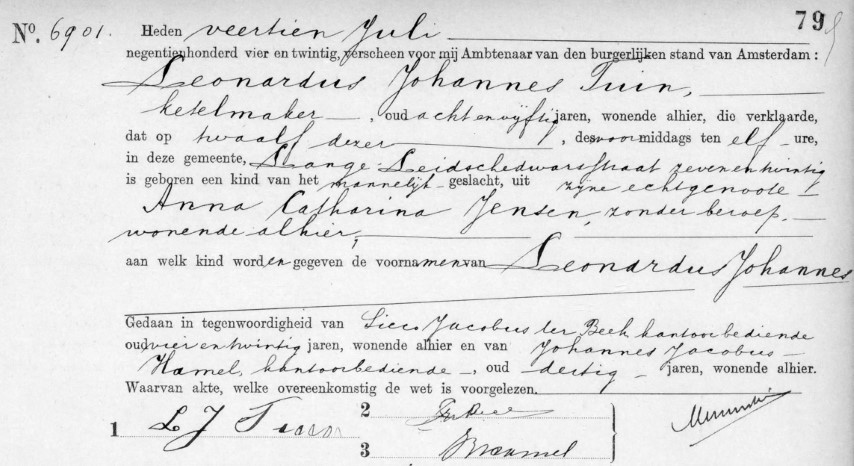 79
No. 6901. Heden veertien Juli
negentienhonderd vier en twintig, verscheen voor mij Ambtenaar van den burgerlijken stand van Amsterdam:
Leonardus Johannes Tuin,
ketelmaker, oud achtenvijftig jaren, wonende alhier, die verklaarde,
dat op twaalf dezer, des voormiddags ten elf ure,
in deze gemeente, Lange Leidschedwarsstraat zevenentwintig
is geboren een kind van het mannelijk geslacht, uit zijne echtgenoote
Anna Catharina Jensen, zonder beroep,
wonende alhier,
aan welk kind worden gegeven de voornamen van Leonardus Johannes
Gedaan in tegenwoordigheid van Jacobus ter Beek kantoorbediende
oud vier en twintig jaren, wonende alhier en van Johannes Jacobus
Hamel, kantoorbediende, oud dertig jaren, wonende alhier.
Waarvan akte, welke overeenkomstig de wet is voorgelezen.
1 L J Tuin
2
3